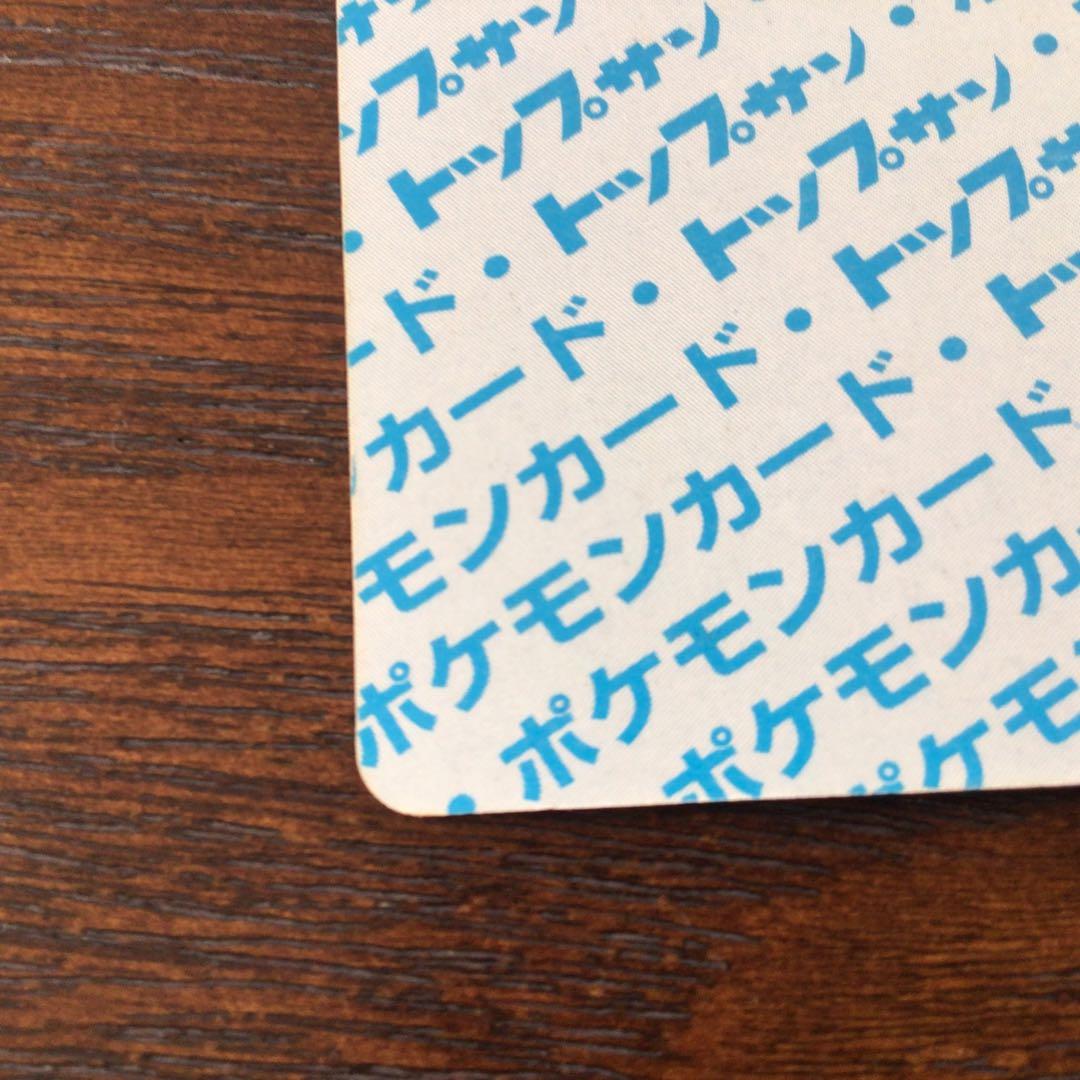 プサン
・トップサン
ード・トップサン・
カード・トップサン・
モンカード・トップサ
ポケモンカード・トッ
・ポケモンカード
ポケモンカ
ケモ